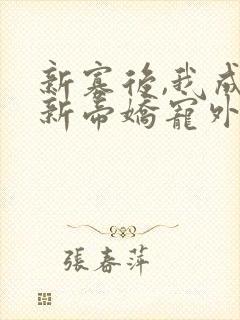 新寡後,我成
新帝嬌寵外
張春萍